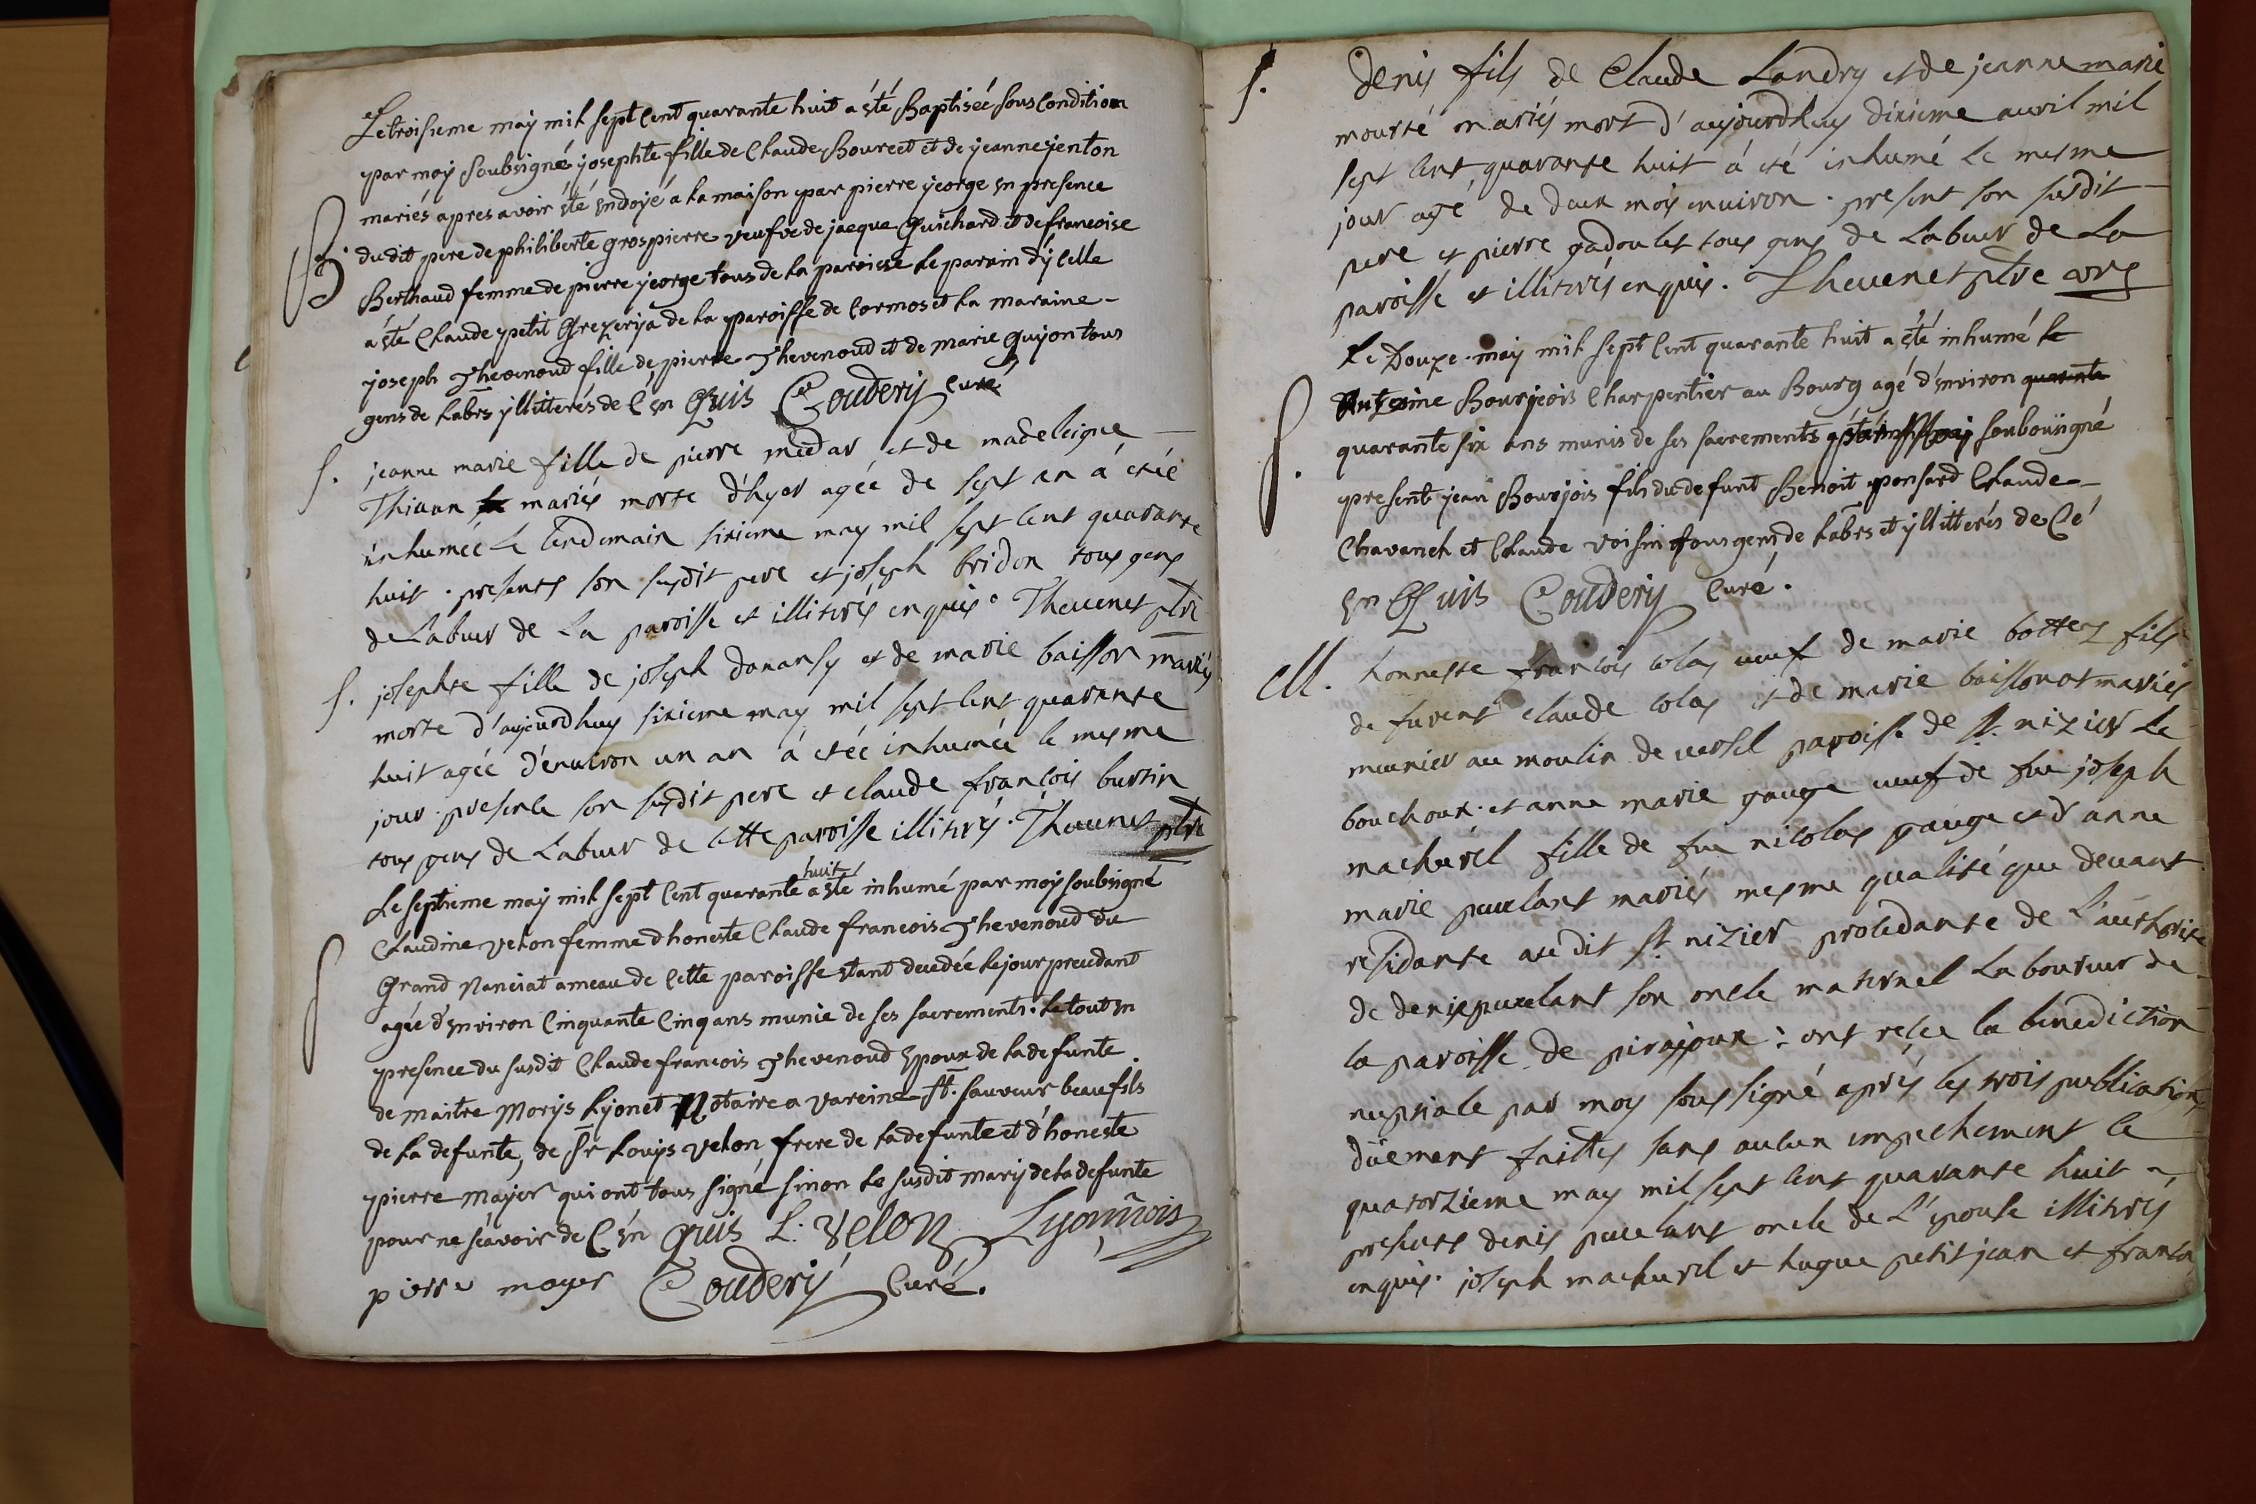 Le troisieme may mil sept Cent quarante huit a été Baptiseé sous Condition
par moy Soubsigné josephte fille de Claude Bourcet et de jeanne jenton
mariés apres avoir été endoyé a la maison par pierre jeorge en presence
B. du dit pere de philiberte grospierre veufve de jacque Guichard et de francoise
Berthaud femme de pierre jeorge tous de la paroisse le parain d'ycelle
a été Claude petit de la paroisse de Cormos et la maraine
joseph Thevenoud fille de pierre Thevenoud et de marie Guyon tous
gens de labrs yllitterés de Cé en Quis Couderij Curé
S. jeanne marie fille de pierre medar et de madeleigne
Thivan mariés morte d'hyer agée de sept an á etée
inhumée le lendemain sixieme may mil sept cent quarante
huit . presents son susdit pere et joseph bridon tous gens
de Labeur de La paroisse et illitirés enquis . Thevenet ptre
S. josephte fille de joseph danansy et de marie baisson mariés
morte d'aujourdhuy sixieme may mil sept cent quarante
huit agée d'environ un an á etée inhumée le mesme
jour . presents son susdit pere et claude françois burtin
tous gens de Labeur de cette paroisse illitirés . Thevenet ptre
Le septieme may mil sept Cent quarante huit a été inhumé par moy soubsigné
Claudine velon femme dhoneste Claude francois Thevenoud du
Grand Nanciat ameau de Cette paroisse étant decedée le jour precedant
agée d'environ Cinquante Cinq ans munie de ses sacrements . le tout en
presence du susdit Claude francois Thevenoud Epoux de la defunte .
de maitre Morys Lyonet Notaire a vareine St. Sauveur beaufils
de la defunte, de Sr Louys velon frere de la defunte et d'honeste
pierre mayer qui ont tous signé sinon le susdit mary de la defunte
pour ne scavoir de C en quis L. velon Lyonnois
pierre mayer Couderij Curé.
S. denis fils de Claude Landry et de jeanne marie
mourté mariés mort d'aujourdhuy dixieme avril mil
sept cent quarante huit á eté inhumé le mesme
jour agé de deux mois environ . present son susdit
pere et pierre gadoulet tous gens de Labeur de La
paroisse et illitirés enquis . Thevenet ptre
Le Douze may mil sept Cent quarante huit a été inhumé le
Antoine Bourjois Charpentier au Bourg agé d'environ quarante
quarante six ans munis de ses sacrements soubousigné
present jean Bourjois fils du defunt Benoit ponsard Claude
Chavanel et Claude voisin tous gens de labrs et yllitterés de Cé
en Quis Couderij Curé .
M. honneste françois colas veuf de marie bottex fils
de furent claude colas et de marie baissonat mariés
munier au moulin de versel paroisse de st. nizier le
bouchoux . et anne marie gauge veuf de feu joseph
machurel fille de feu nicolas gauge et d'anne
marie pucelant mariés mesme qualité que devant
residante audit st. nizier procedante de l'authorite
de denis pucelant son oncle maternel laboureur de
la paroisse de pirajoux : ont reçu la benediction
nuptiale par moy soussigné aprés les trois publications
düement faittes sans aucun empechement le
quatorzieme may mil sept cent quarante huit
presents denis pucelant oncle de L'epouse illitirés
enquis . joseph machurel et hugue petitjean et